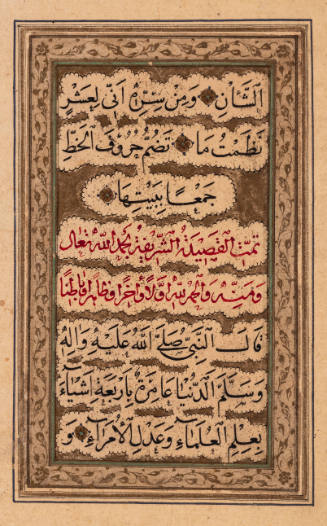 الشَّأنِ وَمِنْ سِنِّهِ أَتَى لِعَشْرِ
نَظَمْتُ مَا تَضُمُّ حُرُوفَ الخَطِّ
جَمْعًا بِبَيْتِهَا
تمت القصيدة الشريفة بحمد الله تعالى
ومنه والحمد لله أولا وآخرا وظاهرا وباطنا
قَالَ النَّبِيُّ صَلَّى اللهُ عَلَيْهِ وَآلِهِ
وَسَلَّمَ الدُّنْيَا عَامِرَةٌ بِارْبَعَةِ اشْيَاءَ
بِعِلْمِ العُلَمَاءِ وَعَدْلِ الأُمَرَاءِ وَ